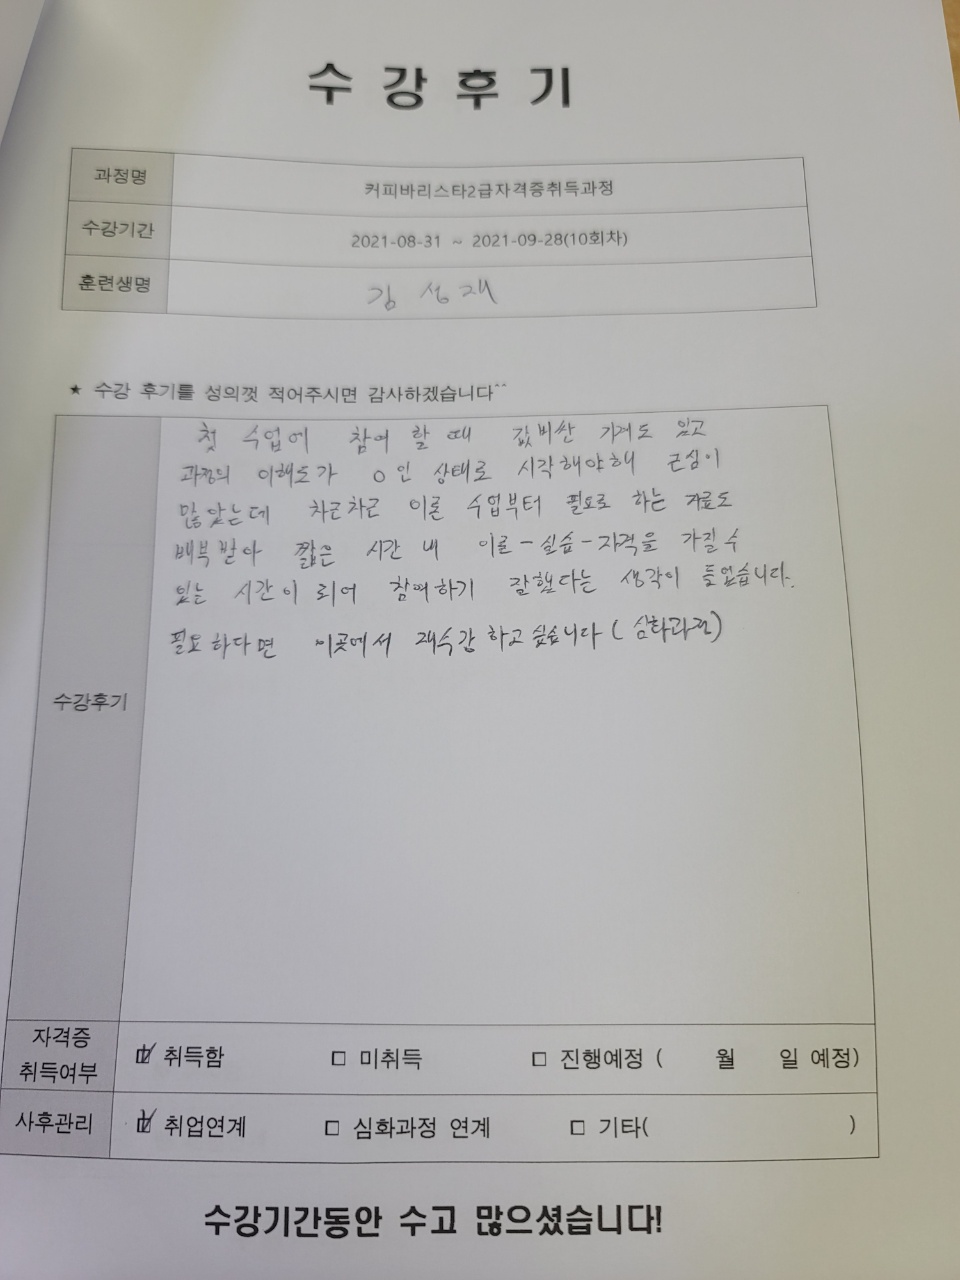 수강후기
과정명 커피바리스타2급자격증취득과정
수강기간 2021-08-31 ~ 2021-09-28(10회차)
훈련생명 김성재
★ 수강 후기를 성의껏 적어주시면 감사하겠습니다^^
첫 수업에 참여 할 때 값비싼 기계도 있고
과정의 이해도가 0인 상태로 시작해야해 근심이
많았는데 차근차근 이론 수업부터 필요로 하는 자료도
배부받아 짧은 시간 내 이론-실습-자격을 가질 수
있는 시간이 되어 참여하기 잘했다는 생각이 들었습니다.
필요하다면 이곳에서 재수강 하고 싶습니다 (심화과정)
수강후기
자격증
취득여부 취득함 □ 미취득 □ 진행예정 ( 월 일 예정)
사후관리 취업연계 □ 심화과정 연계 □ 기타( )
수강기간동안 수고 많으셨습니다!